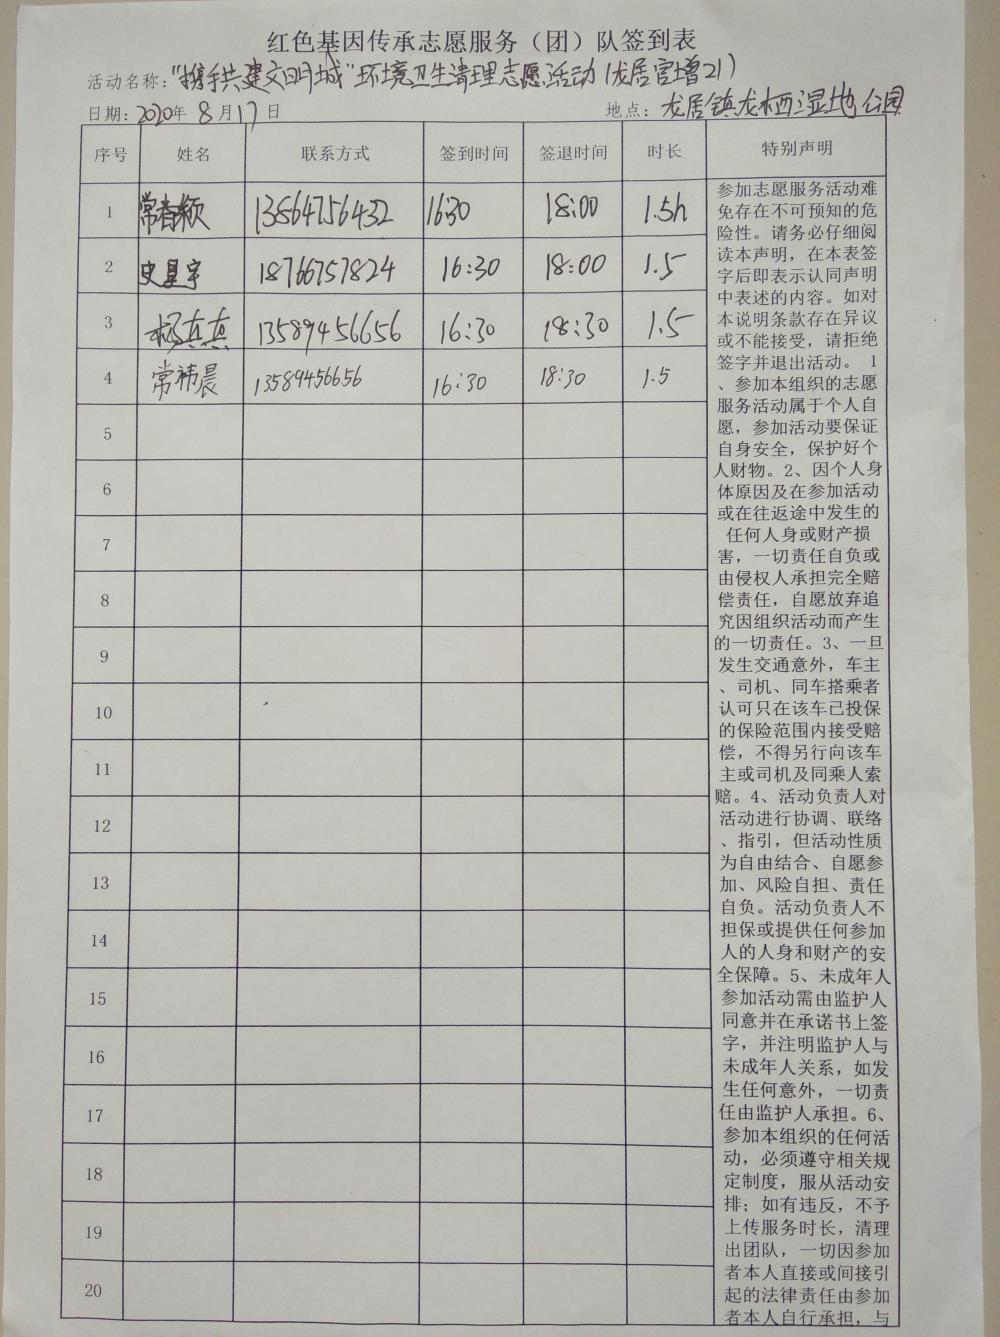 红色基因传承志愿服务（团）队签到表
活动名称：“携手共建文明城”环境卫生清理志愿活动（龙居宫增21）
日期：2020年8月17日 地点：龙居镇龙栖湿地公园
序号 姓名 联系方式 签到时间 签退时间 时长 特别声明
1 常春颖 13864756432 1630 18:00 1.5h
2 史星宇 18766757824 16:30 18:00 1.5
3 杨真真 13589456656 16:30 18:30 1.5
4 常祎晨 13589456656 16:30 18:30 1.5
5
6
7
8
9
10
11
12
13
14
15
16
17
18
19
20
参加志愿服务活动难
免存在不可预知的危
险性。请务必仔细阅
读本声明，在本表签
字后即表示认同声明
中表述的内容。如对
本说明条款存在异议
或不能接受，请拒绝
签字并退出活动。 1
、参加本组织的志愿
服务活动属于个人自
愿，参加活动要保证
自身安全，保护好个
人财物。2、因个人身
体原因及在参加活动
或在往返途中发生的
任何人身或财产损
害，一切责任自负或
由侵权人承担完全赔
偿责任，自愿放弃追
究因组织活动而产生
的一切责任。3、一旦
发生交通意外，车主
、司机、同车搭乘者
认可只在该车已投保
的保险范围内接受赔
偿，不得另行向该车
主或司机及同乘人索
赔。4、活动负责人对
活动进行协调、联络
、指引，但活动性质
为自由结合、自愿参
加、风险自担、责任
自负。活动负责人不
担保或提供任何参加
人的人身和财产的安
全保障。5、未成年人
参加活动需由监护人
同意并在承诺书上签
字，并注明监护人与
未成年人关系，如发
生任何意外，一切责
任由监护人承担。6、
参加本组织的任何活
动，必须遵守相关规
定制度，服从活动安
排；如有违反，不予
上传服务时长，清理
出团队，一切因参加
者本人直接或间接引
起的法律责任由参加
者本人自行承担，与